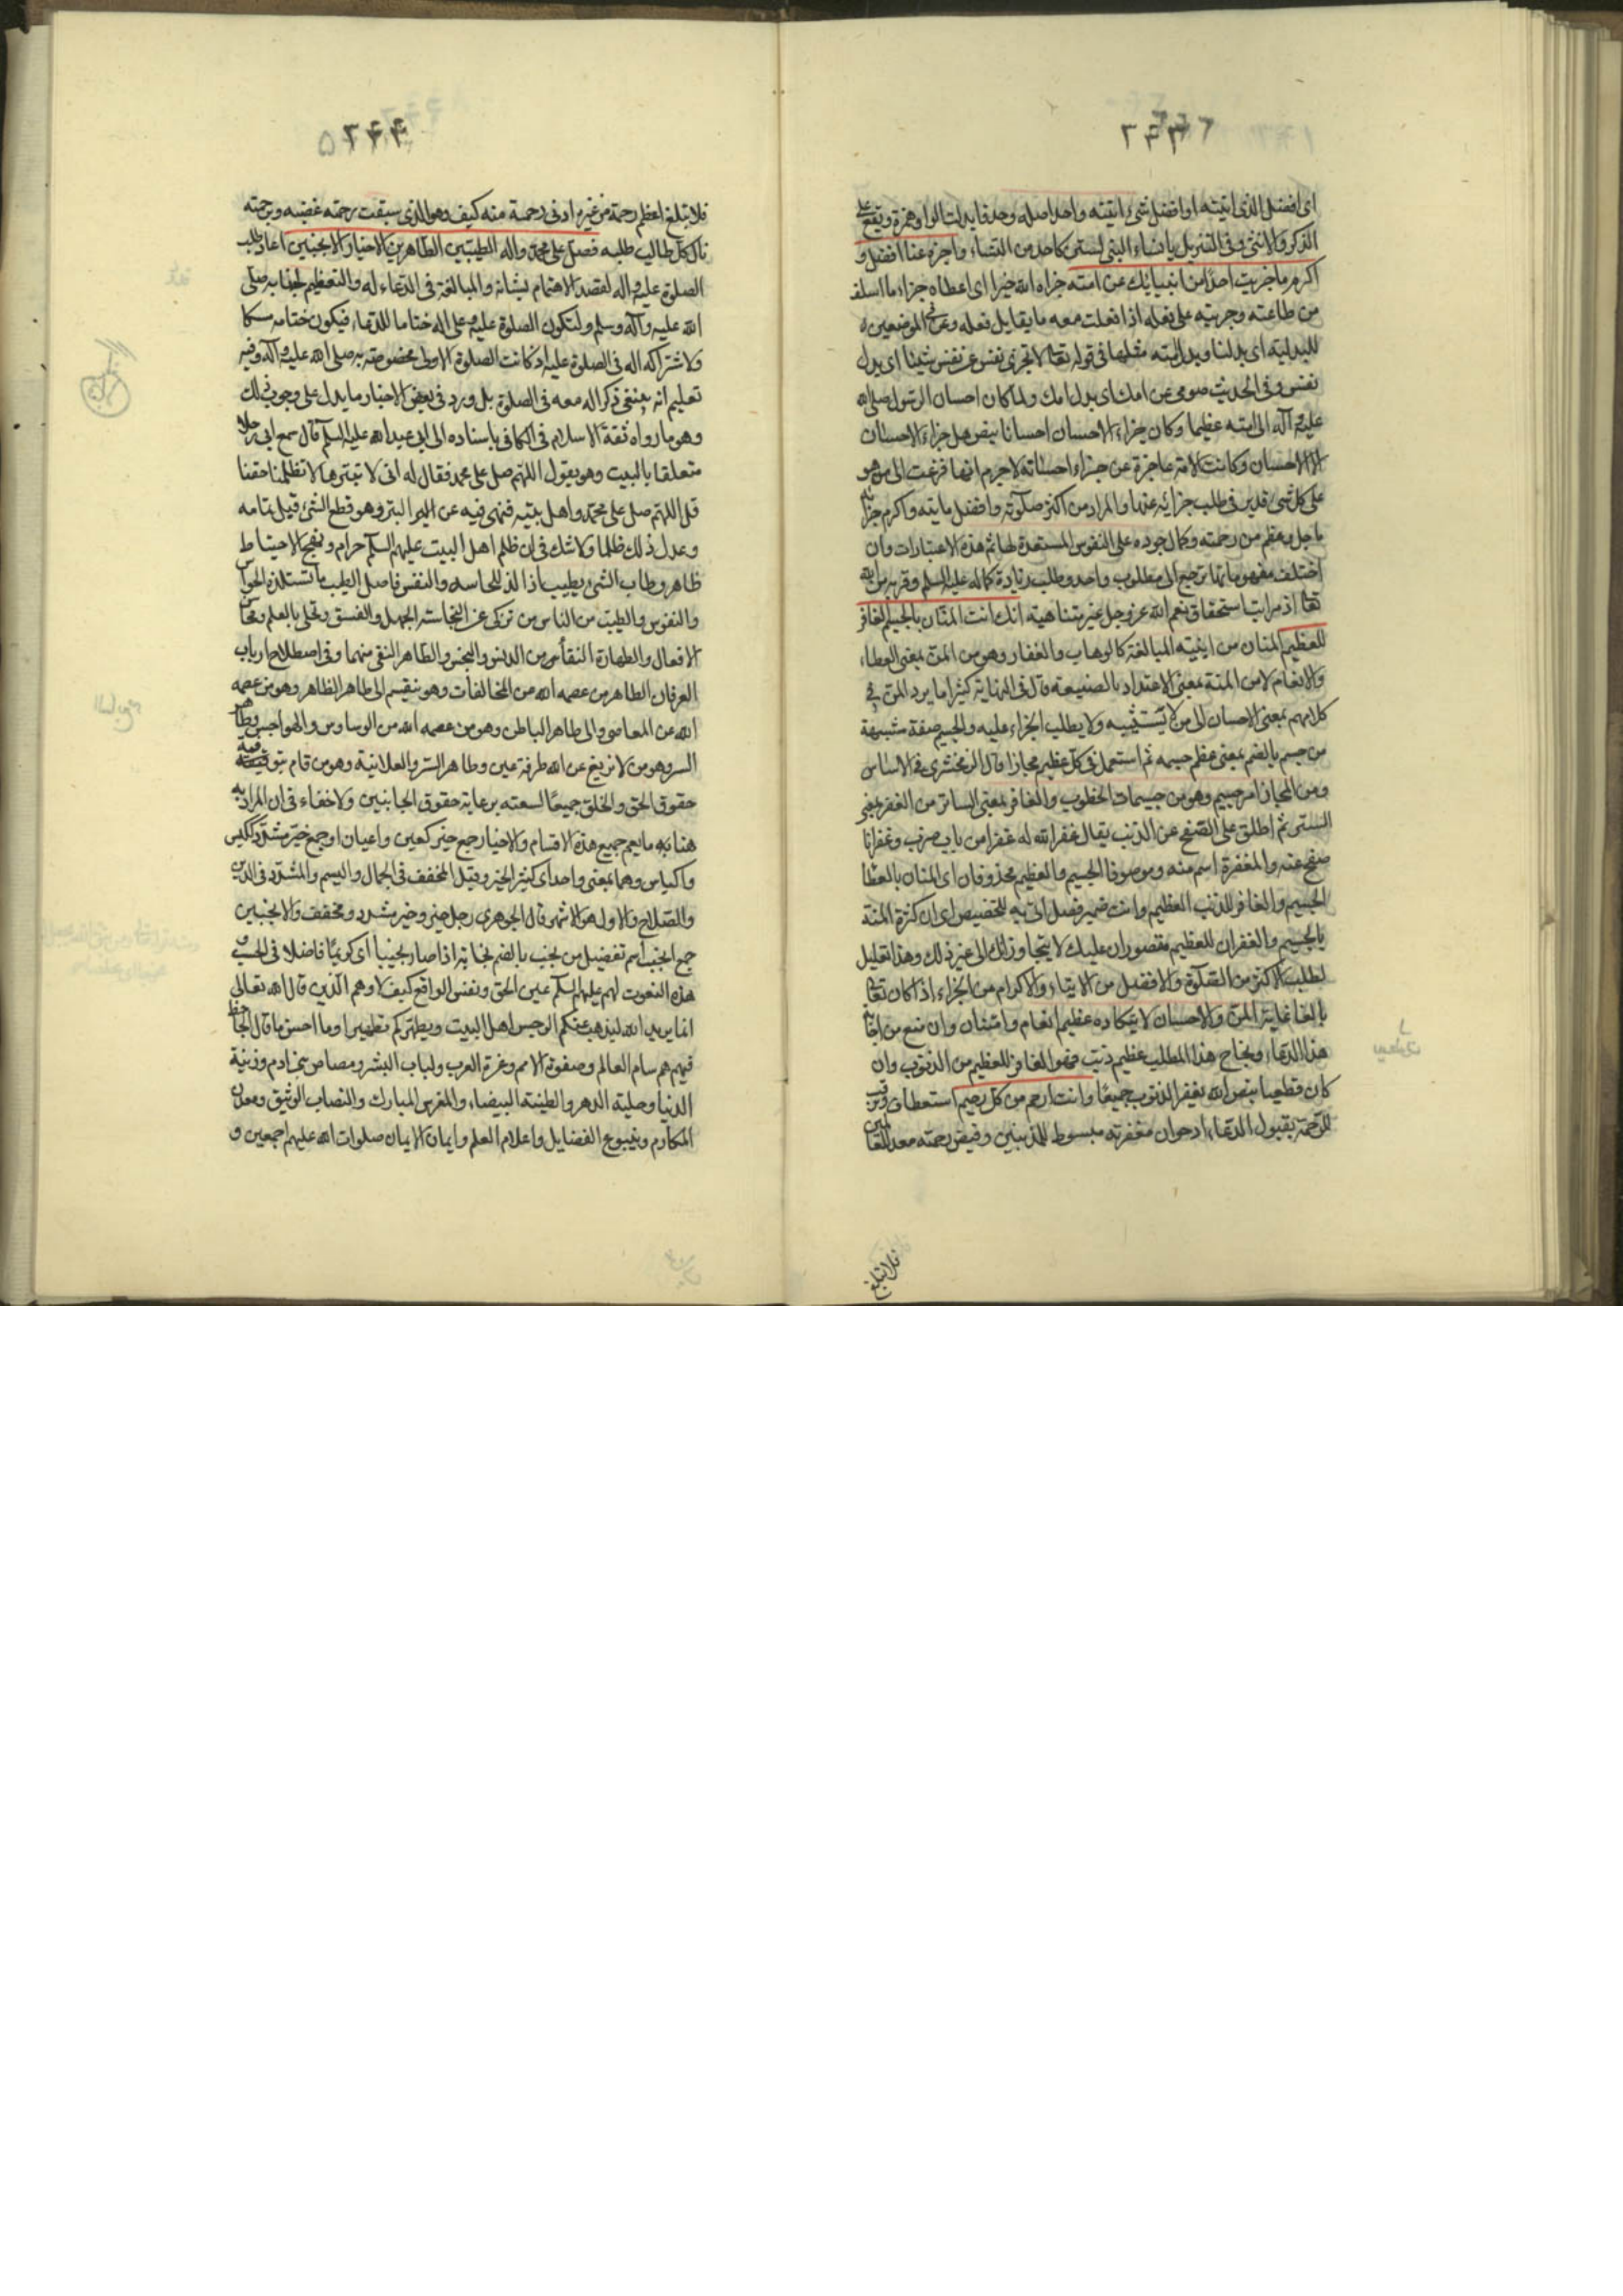 اى افضل الذى اتيته او افضل شئ اتيته واحد اصله وحد فابدلت الواو همزة ويقع على
الذكر والانثى وفى التنزيل يا نساء النبى لستن كاحد من النساء واجزه عنا افضل و
اكرم ما جزيت احدا من انبيائك عن امته جزاه الله خيرا اى اعطاه جزاء ما اسلف
من طاعته وجزيته على فعله اذا فعلت معه ما يقابل فعله وعن فى الموضعين
للبدلية اى بدلنا وبدل امته مثلها فى قوله تعالى لا تجزى نفس عن نفس شيئا اى بدل
نفس وفى الحديث صومى عن امك اى بدل امك ولما كان احسان الرسول صلى الله
عليه وآله الى امته عظيما وكان جزاء الاحسان احسانا بنص هل جزاء الاحسان
الا الاحسان وكانت الامة عاجزة عن جزاء احسانه لا جرم انها فزعت الى من هو
على كل شئ قدير فى طلب جزائه عنها والمراد من اكثر صلوته وافضل ما يته واكرم جزائه
ما جل وعظم من رحمته وكمال جوده على النفوس المستعدة لها ثم هذه الاعتبارات وان
اختلف مفهوماتها ترجع الى مطلوب واحد وطلب زيادة كماله عليه السلم وقربه من الله
تعالى اذ مراتب استحقاق نعم الله عز وجل غير متناهية انك انت المنان بالجسيم الغافر
للعظيم المنان من ابنية المبالغة كالوهاب والغفار وهو من المن بمعنى العطاء
والانعام لا من المنة بمعنى الاعتداد بالصنيعة قال فى النهاية كثيرا ما يرد المن فى
كلامهم بمعنى الاحسان الى من لا يستثيبه ولا يطلب الجزاء عليه والجسيم صفة مشبهة
من جسم بالضم بمعنى عظم جسمه ثم استعمل فى كل عظيم مجازا قال الزمخشرى فى الاساس
ومن المجاز امر جسيم وهو من جسيمات الخطوب والغافر بمعنى الساتر من الغفر بمعنى
الستر ثم اطلق على الصفح عن الذنب يقال غفر الله له غفرا من باب ضرب وغفرانا
صفح عنه والمغفرة اسم منه وموصوفا الجسيم والعظيم محذوفان اى المنان بالعطاء
الجسيم والغافر للذنب العظيم وانت ضمير فصل اتى به للتخصيص اى ان كثرة المنة
بالجسيم والغفران للعظيم مقصوران عليك لا يتجاوزانك الى غيرك وهذا تعليل
لطلب الاكثر من الصلوة والافضل من الايتاء والاكرام من الجزاء اذا كان تعالى
بالغا غاية المن والاحسان لا يتكاده عظيم انعام وامتنان وان منع من اجابة
هذا الدعاء ونجاح هذا المطلب عظيم ذنب فهو الغافر للعظيم من الذنوب وان
كان قطعيا بنص ان الله يغفر الذنوب جميعا وانت ارحم من كل رحيم استعطاف
للرحمة بقبول الدعاء اذ خوان مغفرته مبسوط للمذنبين وفيض رحمته معد للعالمين
فلا تبلغ
فلا تبلغ اعظم رحمة من غيره ادنى رحمة منه كيف وهو الذى سبقت رحمته غضبه وبرحمته
نال كل طالب طلبه فصل على محمد وآله الطيبين الطاهرين الاخيار الانجبين اعاد طلب
الصلوة عليه وآله لقصد الاهتمام بشانه والمبالغة فى الدعاء له والتعظيم لجنابه صلى
الله عليه وآله وسلم ولتكون الصلوة عليه وعلى اله ختاما للدعاء فيكون ختامه مسكا
ولاشتراك اله فى الصلوة عليه اذ كانت الصلوة الاولى مخصوصة به صلى الله عليه وآله وفيه
تعليم انه ينبغى ذكر اله معه فى الصلوة بل ورد فى بعض الاخبار ما يدل على وجوب ذلك
وهو ما رواه ثقة الاسلام فى الكافى باسناده الى ابى عبد الله عليه السلم قال سمع ابى رجلا
متعلقا بالبيت وهو يقول اللهم صل على محمد فقال له ابى لا تبترها لا تظلمنا حقنا
قل اللهم صل على محمد واهل بيته فنهى فيه عن البتر وهو قطع الشئ قبل تمامه
وعد ذلك ظلما ولا شك فى ان ظلم اهل البيت عليهم السلم حرام ونهج الاحتياط
ظاهر وطاب الشئ يطيب اذا لذ للحاسة والنفس فاصل الطيب ما تستلذه الحواس
والنفوس والطيب من الناس من تزكى عن النجاسة الجهل والفسق وتحلى بالعلم ومحاسن
الافعال والطهارة النقا من الدنس والنجس والطاهر النقى منهما وفى اصطلاح ارباب
العرفان الطاهر من عصمه الله من المخالفات وهو ينقسم الى طاهر الظاهر وهو من عصمه
الله عن المعاصى والى طاهر الباطن وهو من عصمه الله من الوساوس والهواجس وطاهر
السر وهو من لا يزيغ عن الله طرفة عين وطاهر السر والعلانية وهو من قام بتوفية
حقوق الحق والخلق جميعا لسعته برعاية حقوق الجانبين ولا خفاء فى ان المراد به
هنا ما يعم جميع هذه الاقسام والاخيار جمع خير كعين واعيان او جمع خير مشدد ككيس
واكياس وهما بمعنى واحد اى كثير الخير وقيل المخفف فى الجمال والميسم والمشدد فى الدين
والصلاح والاول هو الاشهر قال الجوهرى رجل خير وخير مشدد ومخفف والانجبين
جمع انجب اسم تفضيل من نجب بالضم نجابة اذا صار نجيبا اى كريما فاضلا فى الحسب و
هذه النعوت لهم عليهم السلم عين الحق ونفس الواقع كيف لا وهم الذين قال الله تعالى
انما يريد الله ليذهب عنكم الرجس اهل البيت ويطهركم تطهيرا وما احسن ما قال الجاحظ
فيهم هم سام العالم وصفوة الامم وغرة العرب ولباب البشر ومصاص بنى ادم وزينة
الدنيا وحلية الدهر والطينة البيضاء والمغرس المبارك والنصاب الوثيق ومعدن
المكارم وينبوع الفضايل واعلام العلم وايمان الايمان صلوات الله عليهم اجمعين و